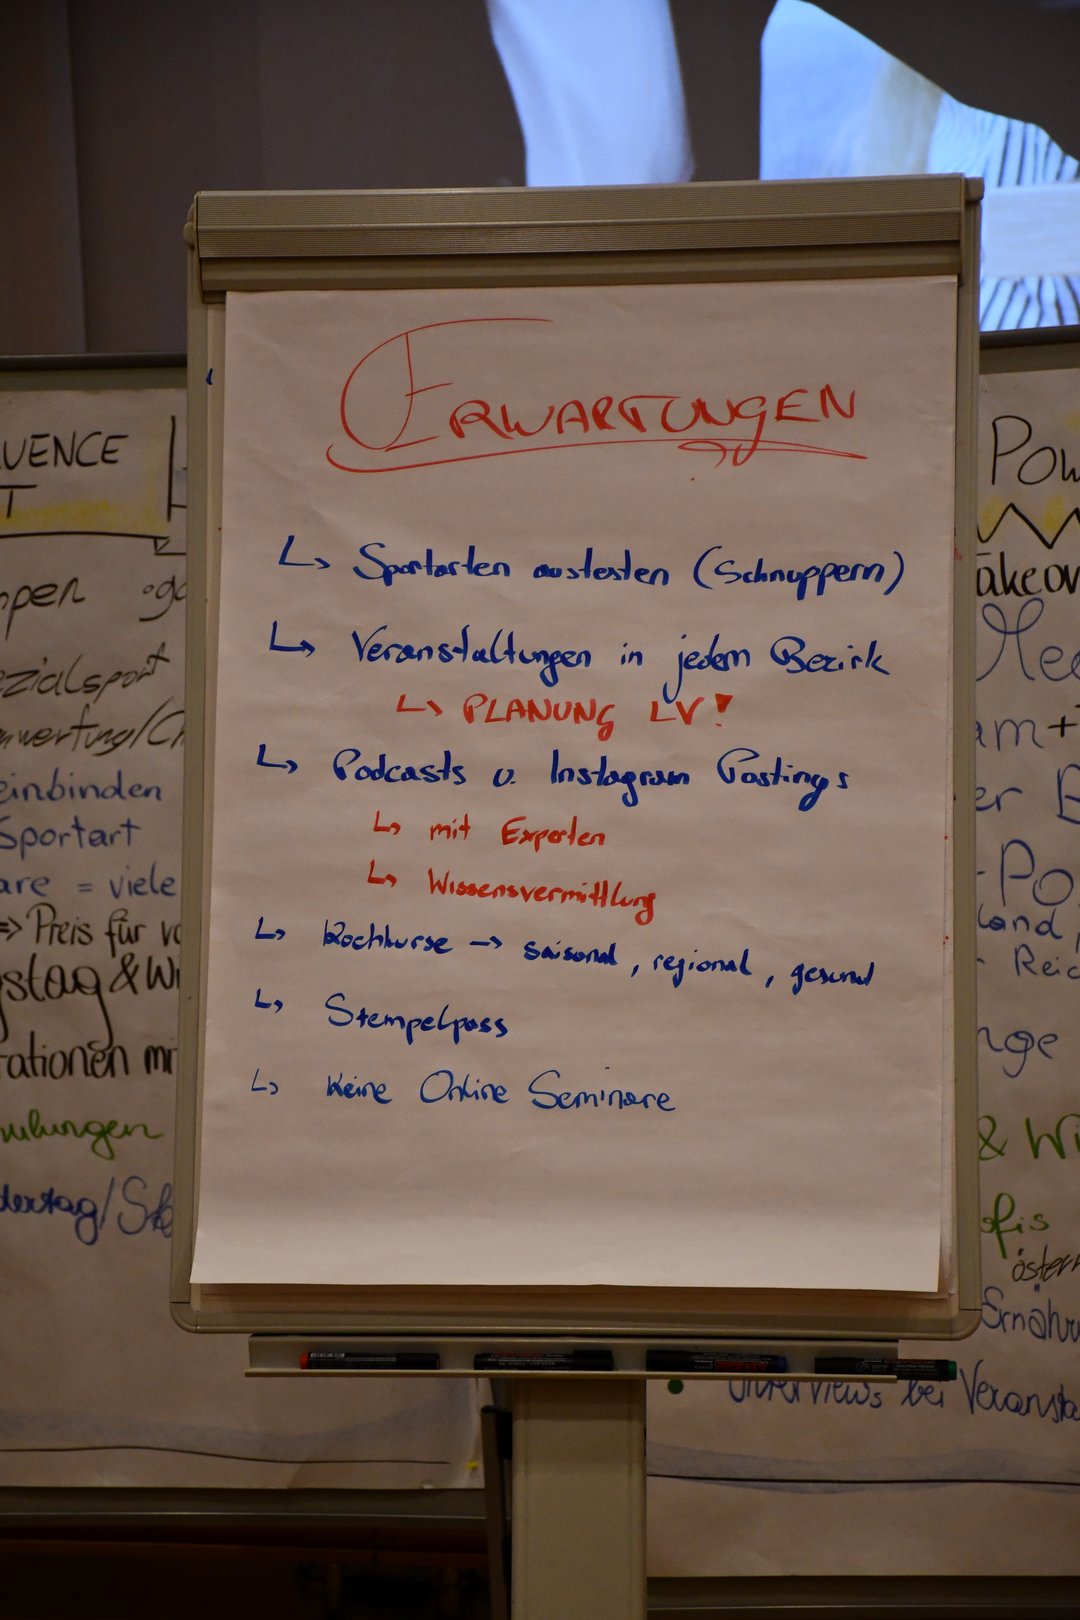 ERWARTUNGEN
↳ Sportarten austesten (Schnuppern)
↳ Veranstaltungen in jedem Bezirk
↳ PLANUNG LV!
↳ Podcasts u. Instagram Postings
↳ mit Experten
↳ Wissensvermittlung
↳ Kochkurse → saisonal, regional, gesund
↳ Stempelpass
↳ Keine Online Seminare
UENCE
T
ppen
zialsport
nwertung/Ch
einbinden
Sportart
are = viele
=> Preis für vo
gstag & Wi
rationen mi
dertag/
Pow
akeov
am+
er B
-Po
Land,
- Reic
nge
& Wi
ofis
österr
Ernähru
Interviews bei Veransta